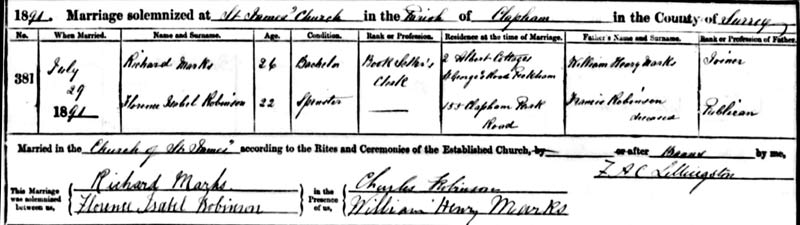 1891. Marriage solemnized at St. James' Church in the Parish of Clapham in the County of Surrey
No. When Married. Name and Surname. Age. Condition. Rank or Profession. Residence at the time of Marriage. Father's Name and Surname. Rank or Profession of Father.
381 July 29 1891 Richard Marks 26 Bachelor Book Seller's Clerk 2 Albert Cottages St George's Road Peckham William Henry Marks Joiner
Florence Isabel Robinson 22 Spinster 155 Clapham Park Road Francis Robinson deceased Publican
Married in the Church of St. James' according to the Rites and Ceremonies of the Established Church, by or after Banns by me,
F A C Lillingston
This Marriage was solemnized between us, Richard Marks in the Presence of us, Charles Robinson
Florence Isabel Robinson William Henry Marks